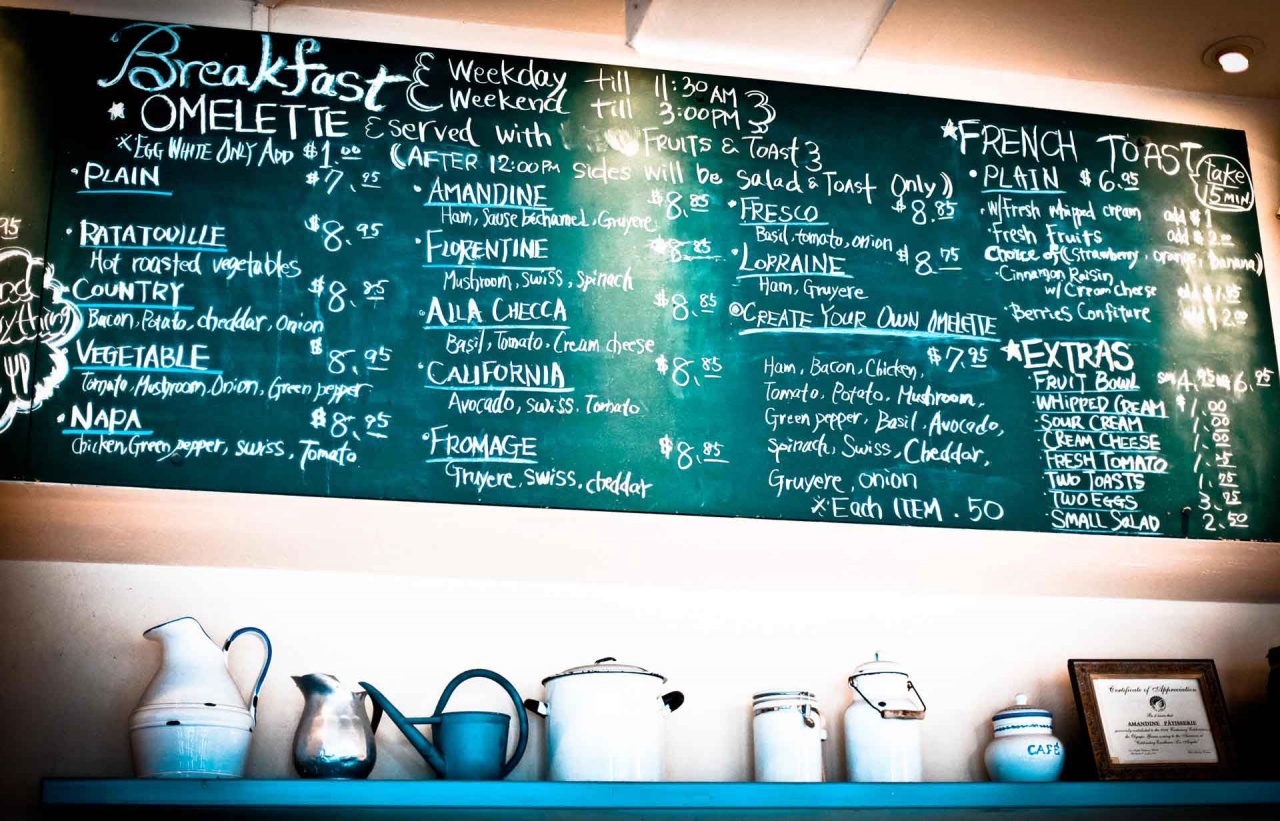 Breakfast { Weekday till 11:30 AM
Weekend till 3:00 PM }
★ OMELETTE { served with FRUITS & TOAST }
※ EGG WHITE ONLY ADD $1.00
(AFTER 12:00 PM sides will be Salad & Toast Only)
• PLAIN $7.95
• RATATOUILLE $8.95
Hot roasted vegetables
• COUNTRY
Bacon, Potato, cheddar, Onion
• VEGETABLE $8.95
Tomato, Mushroom, Onion, Green pepper
• NAPA $8.95
Chicken, Green pepper, swiss, Tomato
• AMANDINE $8.85
Ham, Sause béchamel, Gruyere
• FLORENTINE $8.85
Mushroom, Swiss, Spinach
• ALLA CHECCA $8.85
Basil, Tomato, Cream cheese
• CALIFORNIA $8.85
Avocado, Swiss, Tomato
• FROMAGE $8.85
Gruyere, swiss, cheddar
• FRESCO $8.85
Basil, tomato, onion
• LORRAINE $8.75
Ham, Gruyere
◎ CREATE YOUR OWN OMELETTE
$7.95
Ham, Bacon, Chicken,
Tomato, Potato, Mushroom,
Green pepper, Basil, Avocado,
Spinach, Swiss, Cheddar,
Gruyere, onion
※ Each ITEM .50
★ FRENCH TOAST
take
15 MIN
• PLAIN $6.95
• W/Fresh whipped cream add $1
• Fresh Fruits add $2.00
Choice of (Strawberry, orange, Banana)
• Cinnamon Raisin
w/ Cream Cheese
• Berries Confiture
★ EXTRAS
• FRUIT BOWL 6.95
• WHIPPED CREAM $1.00
• SOUR CREAM 1.00
• CREAM CHEESE 1.00
• FRESH TOMATO
• TWO TOASTS
• TWO EGGS
• SMALL SALAD 2.50
95
CAFÉ
Certificate of Appreciation
AMANDINE PÂTISSERIE